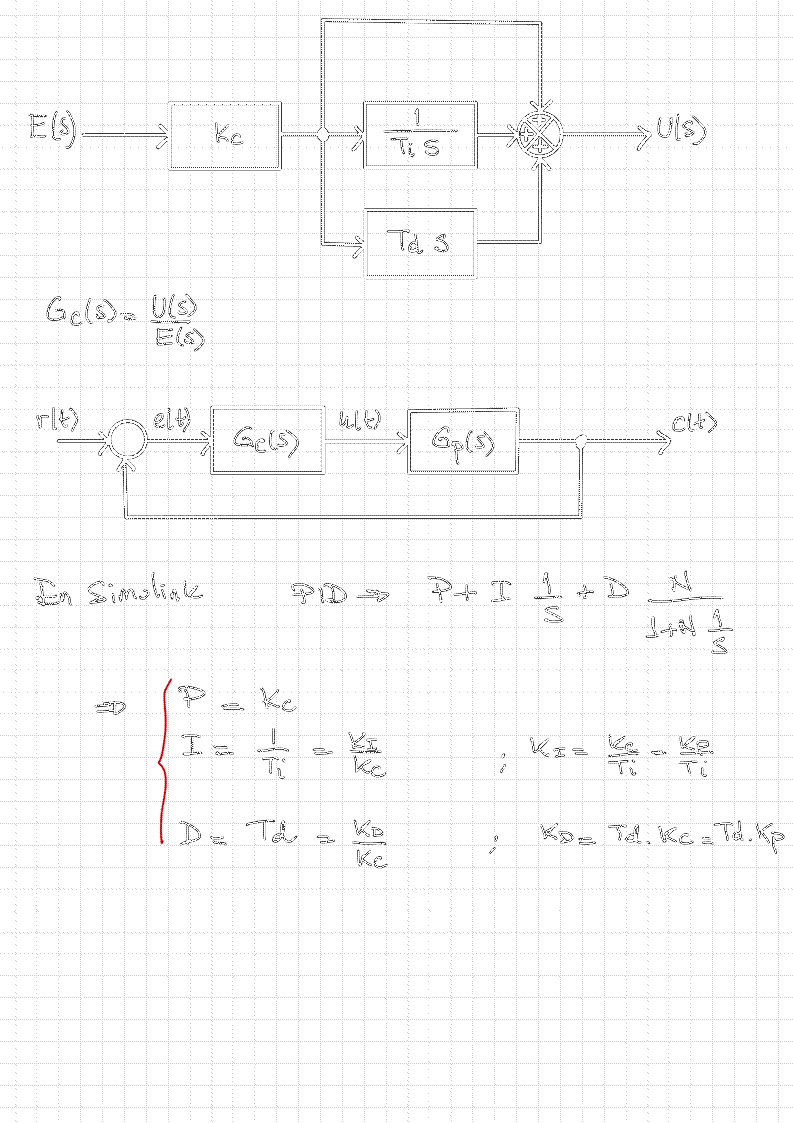 E(s) Kc 1/(Ti s) U(s)
Td s
Gc(s) = U(s)/E(s)
r(t) e(t) Gc(s) u(t) Gp(s) c(t)
En Simulink PID ⇒ P + I 1/s + D N/(1+N 1/s)
⇒ { P = Kc
I = 1/Ti = KI/Kc ; KI = Kc/Ti = Kp/Ti
D = Td = KD/Kc ; KD = Td . Kc = Td . Kp